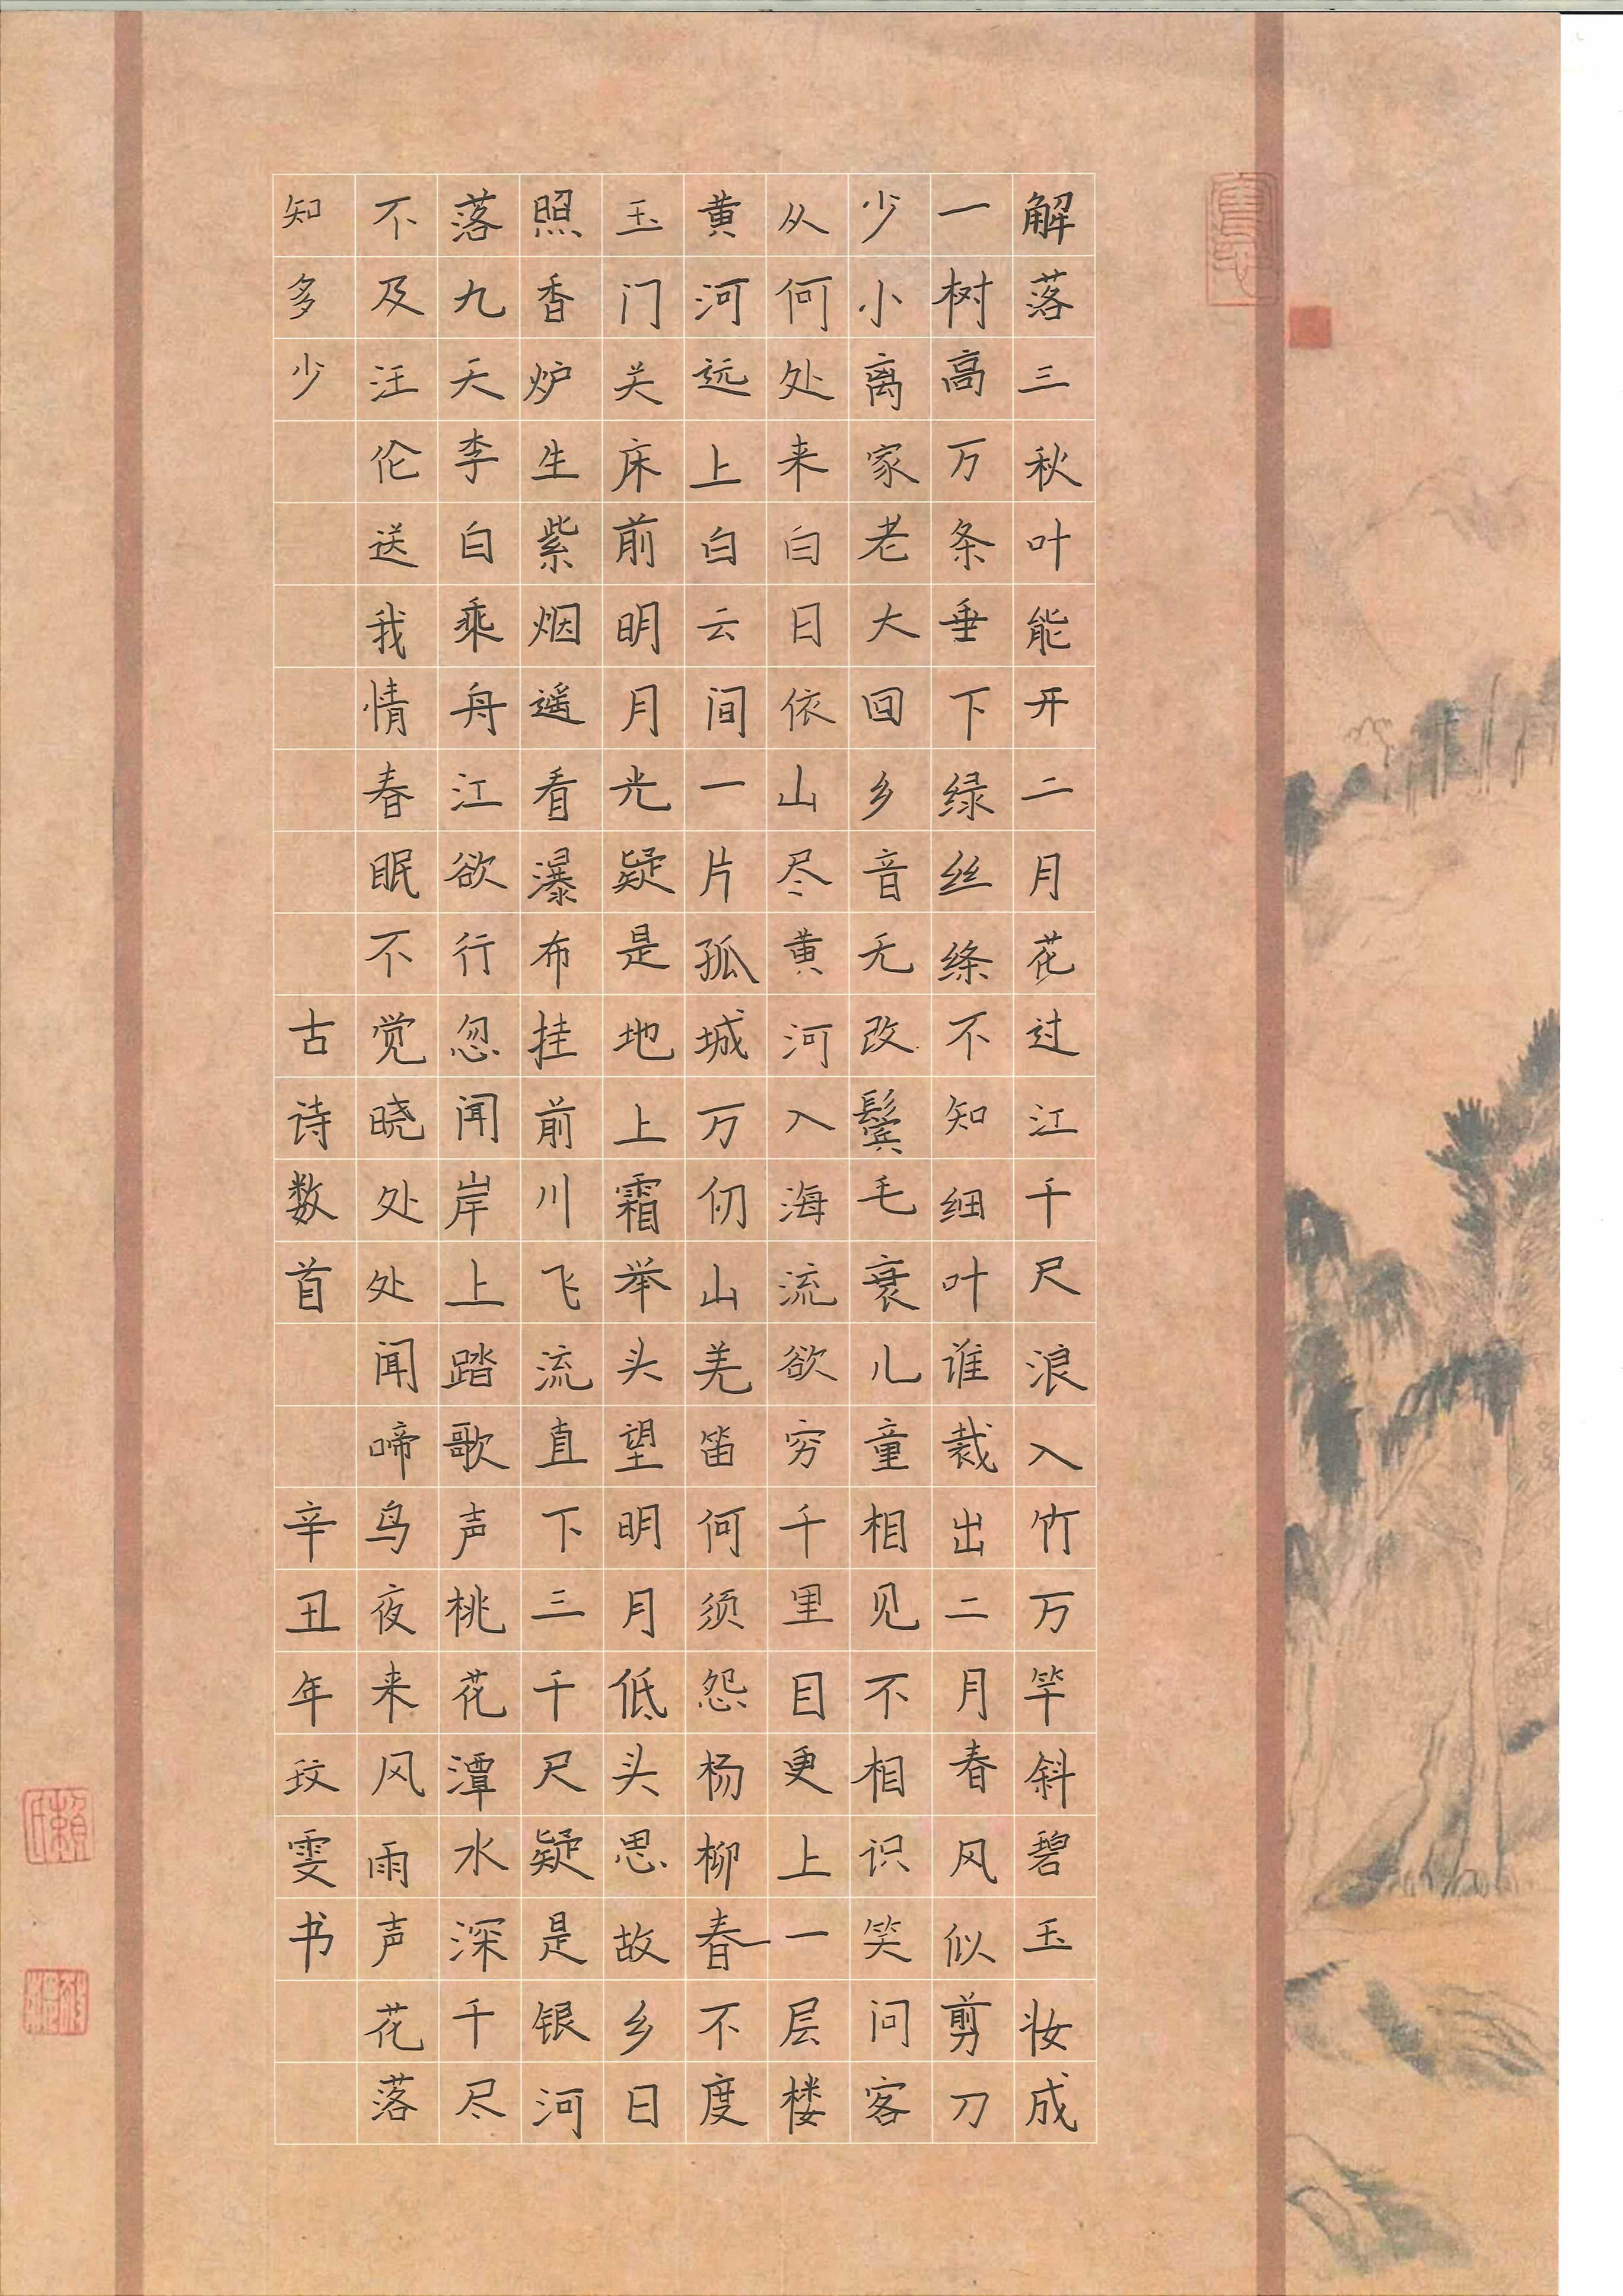 解落三秋叶能开二月花过江千尺浪入竹万竿斜碧玉妆成
一树高万条垂下绿丝绦不知细叶谁裁出二月春风似剪刀
少小离家老大回乡音无改鬓毛衰儿童相见不相识笑问客
从何处来白日依山尽黄河入海流欲穷千里目更上一层楼
黄河远上白云间一片孤城万仞山羌笛何须怨杨柳春一不度
玉门关床前明月光疑是地上霜举头望明月低头思故乡日
照香炉生紫烟遥看瀑布挂前川飞流直下三千尺疑是银河
落九天李白乘舟江欲行忽闻岸上踏歌声桃花潭水深千尽
不及汪伦送我情春眠不觉晓处处闻啼鸟夜来风雨声花落
知多少
古诗数首
辛丑年玟雯书